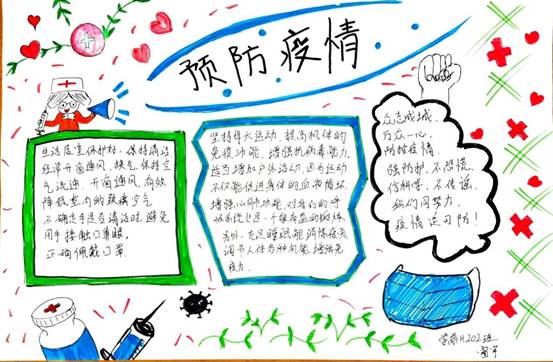 预防疫情
生活居室保护好，保持清洁
经常开窗通风，换气，保持空
气流通，开窗通风，有效
降低室内的致病空气
不确定手是否清洁时，避免
用手接触口鼻眼。
正确佩戴口罩
坚持伸大运动，提高机体的
免疫功能，增强抗病毒能力
适当增加户外运动，因为运动
不仅能促进身体的血液循环，
增强心肺功能，对我们的呼
吸系统也是一个很有益的锻炼
另外，充足睡眠能消除疲劳
调节人体各种机能，增强免
疫力
众志成城，
万众一心，
防控疫情，
强防护，不恐慌，
信科学，不传谣，
我们同努力，
疫情误可防！
202班